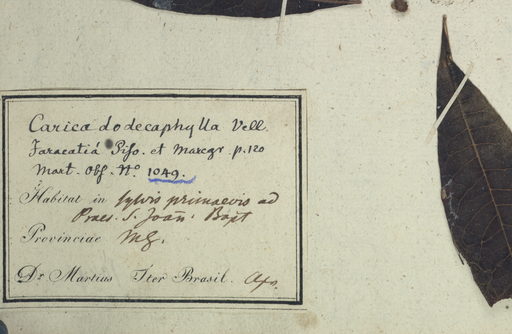 Carica dodecaphylla Vell.
Jaracatiá Piso. et Marcgr. p. 120
Mart. Obs. N.º 1049.
Habitat in sylvis primaevis ad
Praes. S. Joañ: Bapt
Provinciae MG.
Dr. Martius Iter Brasil.